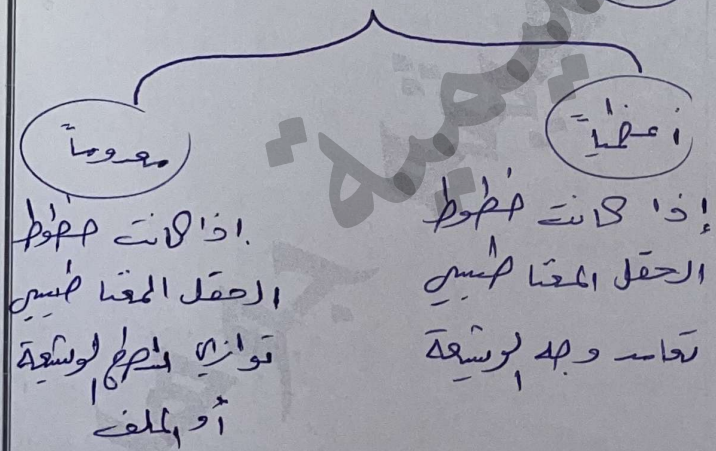 أعظمياً
إذا كانت خطوط
الحقل المغناطيسي
تعامد وجه الوشيعة
معدوماً
إذا كانت خطوط
الحقل المغناطيسي
توازي سطح الوشيعة
أو الملف